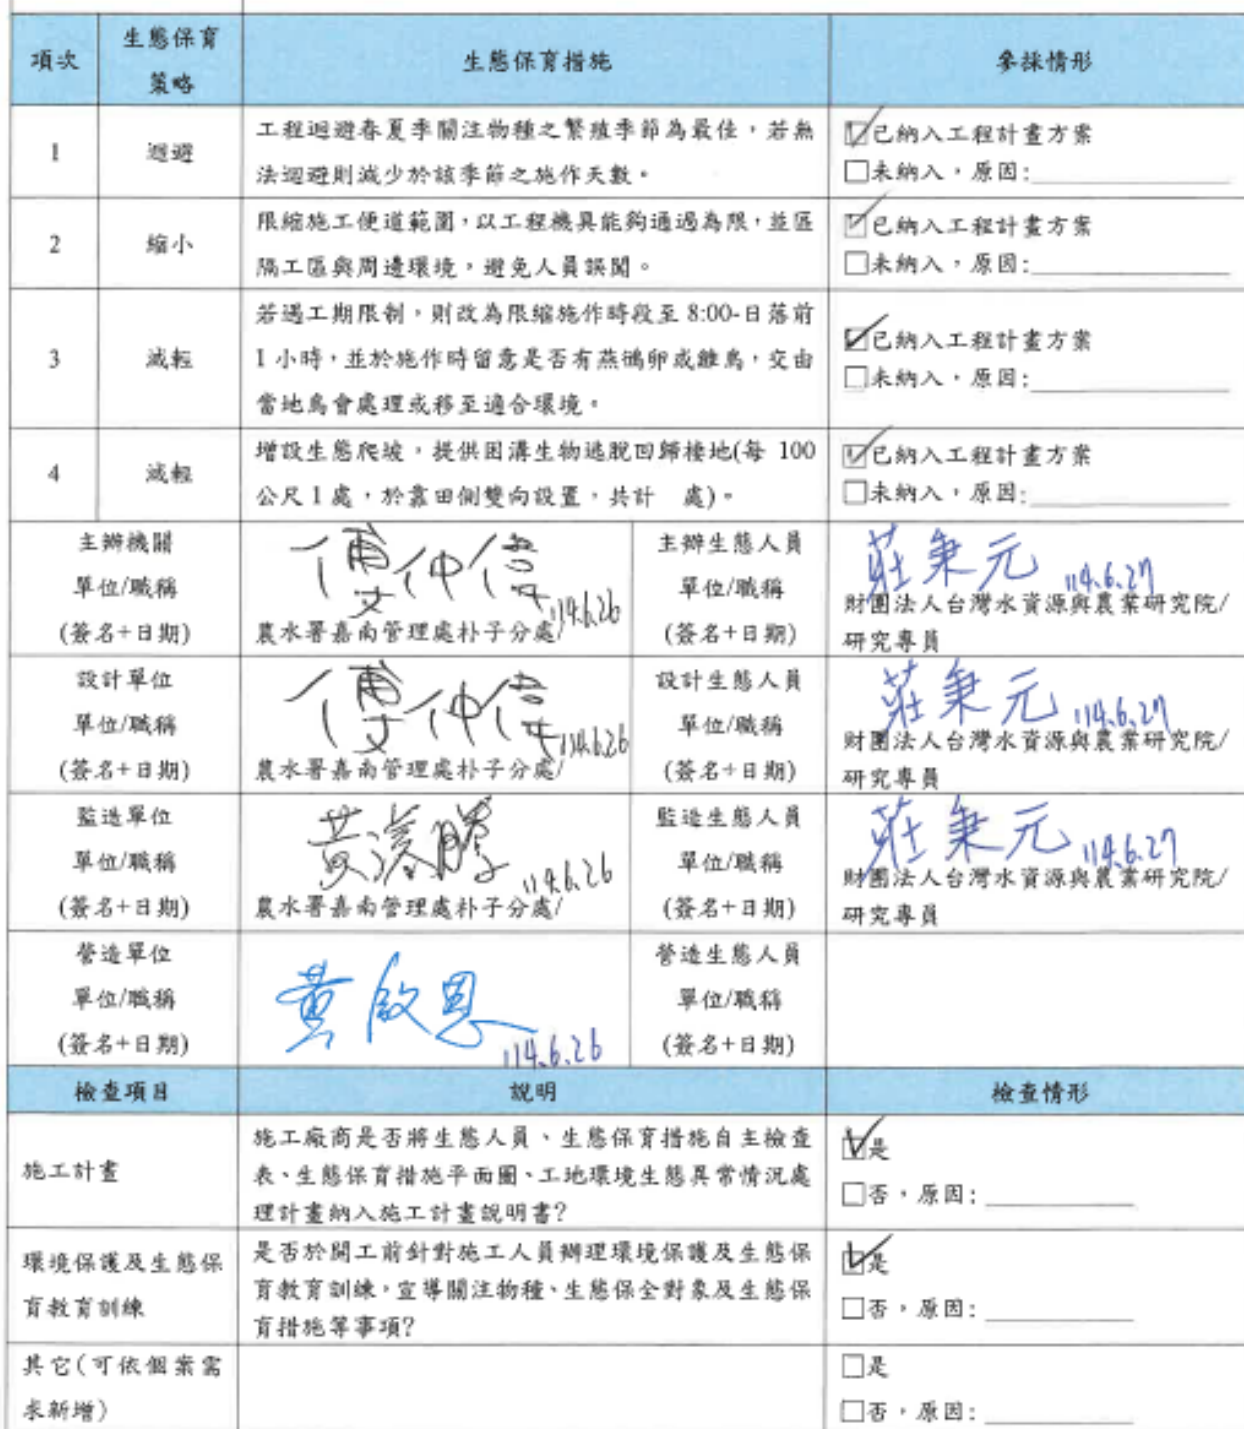 項次 生態保育策略 生態保育措施 參採情形
1 迴避 工程迴避春夏季關注物種之繁殖季節為最佳，若無
法迴避則減少於該季節之施作天數。
☑已納入工程計畫方案
□未納入，原因:
2 縮小 限縮施工便道範圍，以工程機具能夠通過為限，並區
隔工區與周邊環境，避免人員誤闖。
☑已納入工程計畫方案
□未納入，原因:
3 減輕 若遇工期限制，則改為限縮施作時段至 8:00-日落前
1 小時，並於施作時留意是否有燕鴴卵或雛鳥，交由
當地鳥會處理或移至適合環境。
☑已納入工程計畫方案
□未納入，原因:
4 減輕 增設生態爬坡，提供困溝生物逃脫回歸棲地(每 100
公尺 1 處，於靠田側雙向設置，共計 處)。
☑已納入工程計畫方案
□未納入，原因:
主辦機關
單位/職稱
(簽名+日期)
傅仲偉 114.6.26
農水署嘉南管理處朴子分處/
主辦生態人員
單位/職稱
(簽名+日期)
莊秉元 114.6.27
財團法人台灣水資源與農業研究院/
研究專員
設計單位
單位/職稱
(簽名+日期)
傅仲偉 114.6.26
農水署嘉南管理處朴子分處/
設計生態人員
單位/職稱
(簽名+日期)
莊秉元 114.6.27
財團法人台灣水資源與農業研究院/
研究專員
監造單位
單位/職稱
(簽名+日期)
黃 114.6.26
農水署嘉南管理處朴子分處/
監造生態人員
單位/職稱
(簽名+日期)
莊秉元 114.6.27
財團法人台灣水資源與農業研究院/
研究專員
營造單位
單位/職稱
(簽名+日期)
黃啟恩
114.6.26
營造生態人員
單位/職稱
(簽名+日期)
檢查項目 說明 檢查情形
施工計畫
施工廠商是否將生態人員、生態保育措施自主檢查
表、生態保育措施平面圖、工地環境生態異常情況處
理計畫納入施工計畫說明書?
☑是
□否，原因:
環境保護及生態保
育教育訓練
是否於開工前針對施工人員辦理環境保護及生態保
育教育訓練，宣導關注物種、生態保全對象及生態保
育措施等事項?
☑是
□否，原因:
其它(可依個案需
求新增)
□是
□否，原因: